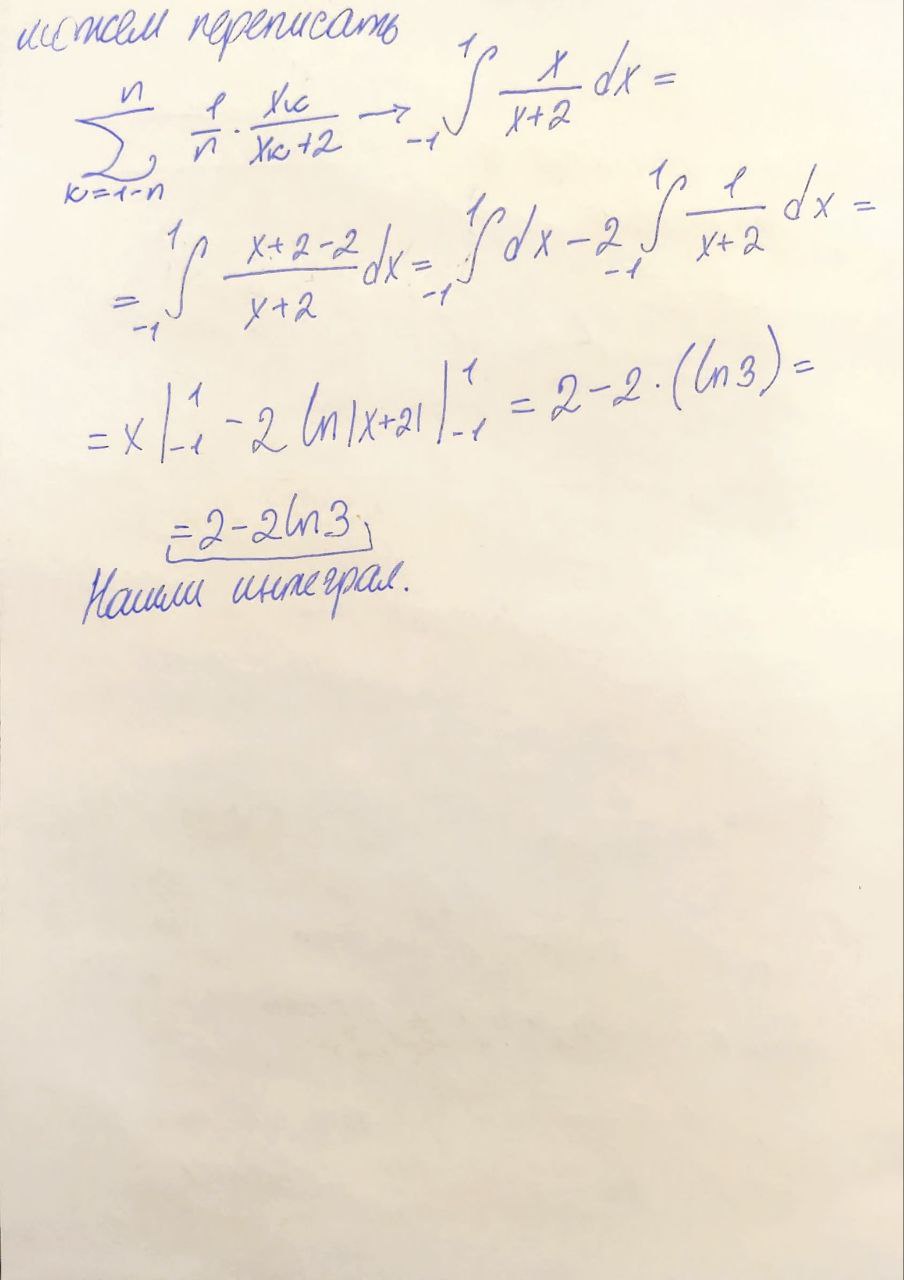 можем переписать
∑_{k=1-n}^{n} 1/n · x_k/(x_k+2) → ∫_{-1}^{1} x/(x+2) dx =
= ∫_{-1}^{1} (x+2-2)/(x+2) dx = ∫_{-1}^{1} dx - 2 ∫_{-1}^{1} 1/(x+2) dx =
= x |_{-1}^{1} - 2 ln|x+2| |_{-1}^{1} = 2 - 2·(ln3) =
= 2 - 2ln3
Нашли интеграл.